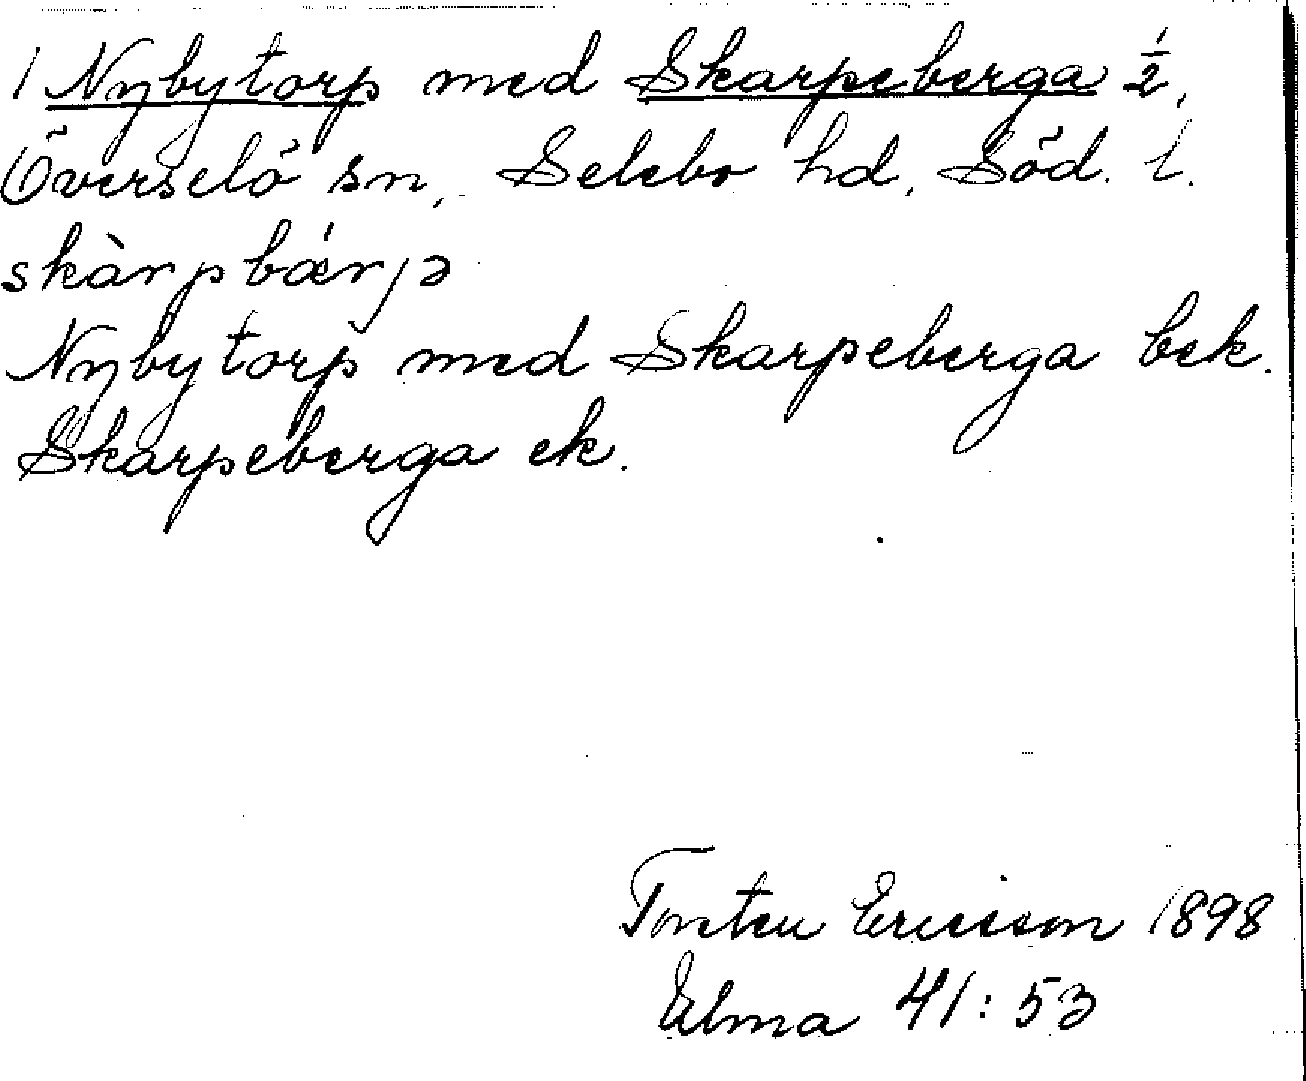 1 Nybytorp med Skarpeberga 1/2,
Överselö sn, Selebo hd, Söd. l.
skàrpbǽrjə
Nybytorp med Skarpeberga bek.
Skarpeberga ek.
Torsten Ericsson 1898
Elma 41:53